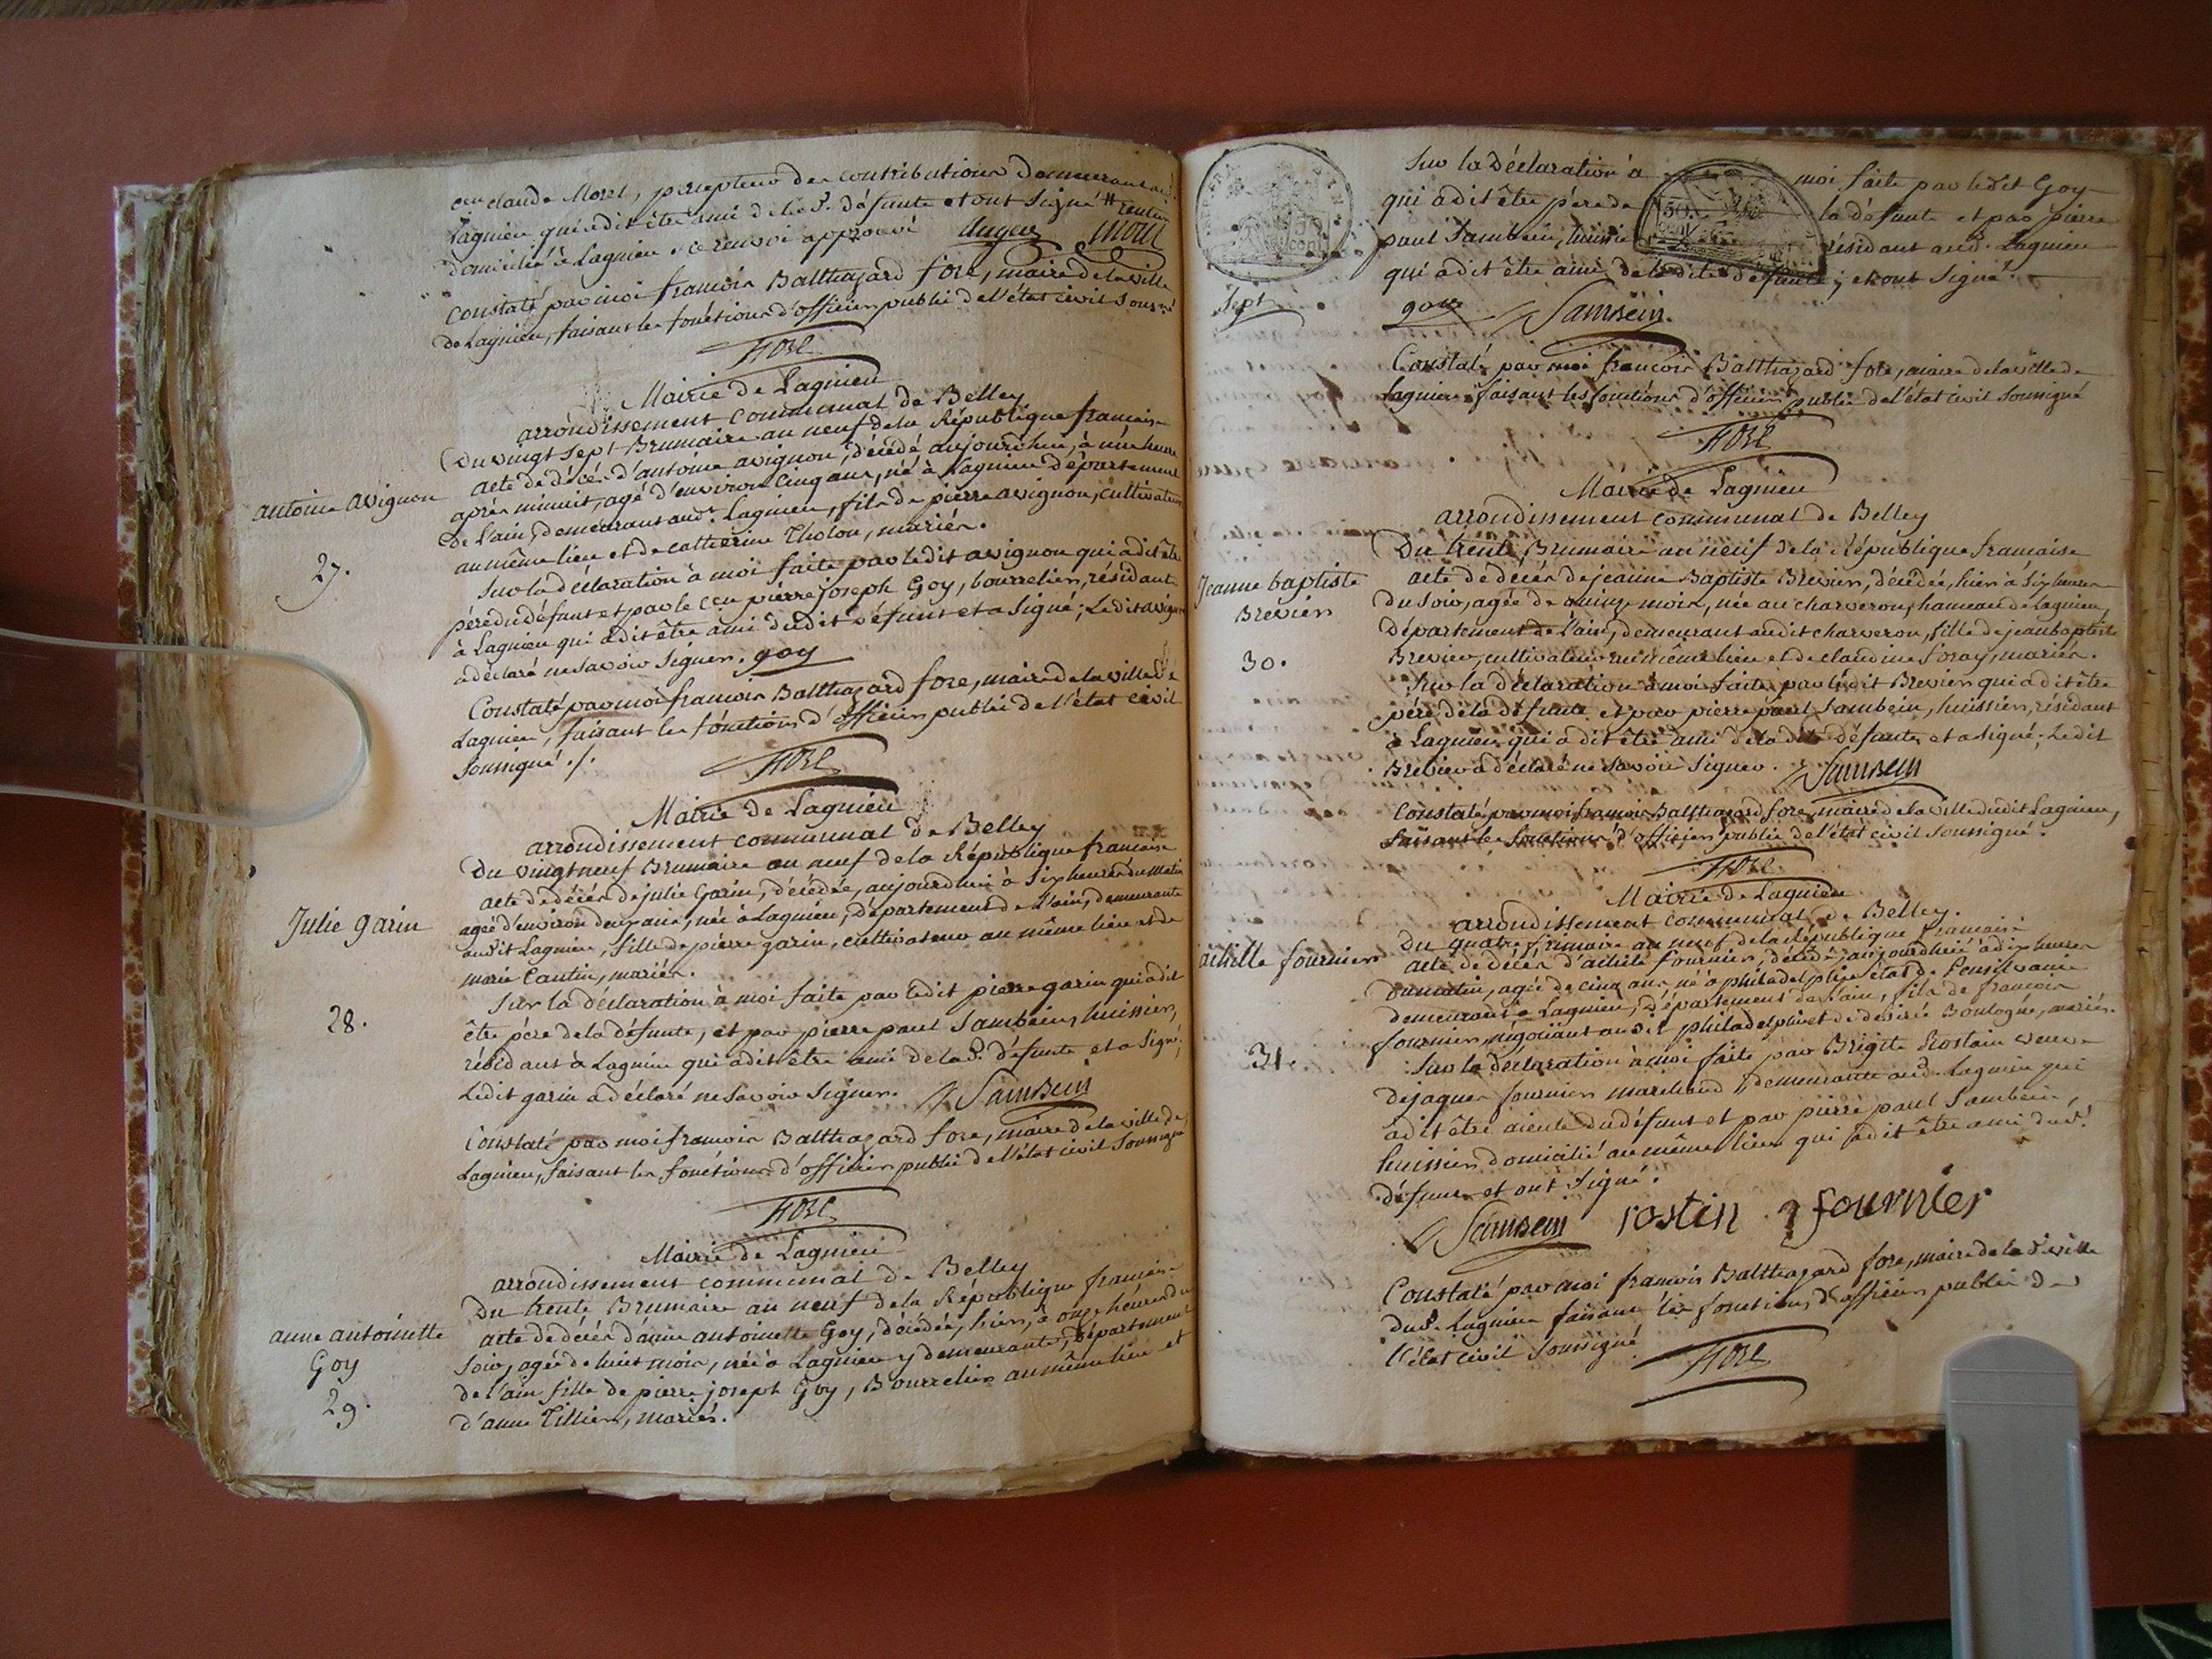 claude Moret, percepteur des contributions demeurant aud.
Lagnieu qui a dit être ami de lad. défunte et ont signé # rentier
domicilié à Lagnieu. ce renvoi approuvé
Constaté par moi françois Balthazard fore, maire de la ville
de Lagnieu, faisant les fonctions d'officier public de l'état civil soussigné
fore
Mairie de Lagnieu
arrondissement communal de Belley
Du vingt sept Brumaire an neuf de la République francaise
antoine avignon
acte de décès d'antoine avignon, décédé aujourd'hui, à une heure
après minuit, agé d'environ cinq ans, né à Lagnieu département
de l'ain, demeurant aud. Lagnieu, fils de pierre avignon, cultivateur
au même lieu et de catherine Tholon, mariés.
27.
Sur la déclaration à moi faite par ledit avignon qui a dit être
père du défunt et par le cen pierre joseph Goy, bourrelier, résidant
à Lagnieu qui a dit être ami dudit défunt et a signé; Ledit avignon
a déclaré ne savoir signer. goy
Constaté par moi francois Balthazard fore, maire de la ville de
Lagnieu, faisant les fonctions d'officier public de l'état civil
soussigné ./.
fore
Mairie de Lagnieu
arrondissement communal de Belley
Du vingt neuf Brumaire an neuf de la République francaise
Julie garin
acte de décès de julie Garin, décédée, aujourd'hui à six heures du matin
agée d'environ deux ans, née à Lagnieu, département de l'ain, demeurante
audit Lagnieu, fille de pierre garin, cultivateur au même lieu et de
marie Cantin, mariés.
28.
Sur la déclaration à moi faite par ledit pierre garin qui a dit
être père de la défunte, et par pierre paul Sambein, huissier,
résidant à Lagnieu qui a dit être ami de lad. défunte et a signé;
Ledit garin a déclaré ne savoir signer. Sambein
Constaté par moi francois Balthazard fore, maire de la ville de
Lagnieu, faisant les fonctions d'officier public de l'état civil soussigné
fore
Mairie de Lagnieu
arrondissement communal de Belley
Du trente Brumaire an neuf de la République francaise
anne antoinette
Goy
29.
acte de décès d'anne antoinette Goy, décédée, hier, à onze heures du
soir, agée de huit mois, née à Lagnieu y demeurante, département
de l'ain fille de pierre joseph Goy, Bourrelier au même lieu et
d'anne Tillier, mariés.
Sur la déclaration à moi faite par ledit Goy
qui a dit être père de la défunte et par pierre
paul Sambein, huissier résidant aud. Lagnieu
qui a dit être ami de ladite défunte; et ont signé.
Sept
goy Sambein.
Constaté par moi francois Balthazard fore, maire de la ville de
Lagnieu faisant les fonctions d'officier public de l'état civil soussigné
fore
Mairie de Lagnieu
arrondissement communal de Belley
Du trente Brumaire an neuf de la République francaise
Jeanne baptiste
Brevier
30.
acte de décès de jeanne Baptiste Brevier, décédée, hier à six heures
du soir, agée de quinze mois, née au charveron, hameau de Lagnieu,
département de l'ain, demeurant audit charveron, fille de jean baptiste
Brevier, cultivateur au même lieu et de claudine foray, mariés.
Sur la déclaration à moi faite par ledit Brevier qui a dit être
père de la défunte et par pierre paul Sambein, huissier, résidant
à Lagnieu qui a dit être ami de la dite défunte et a signé; Ledit
Brevier a déclaré ne savoir signer. Sambein
Constaté par moi francois Balthazard fore maire de la ville dudit Lagnieu,
faisant les fonctions d'officier public de l'état civil soussigné.
fore
Mairie de Lagnieu
arrondissement communal de Belley.
Du quatre frimaire an neuf de la République francaise
achille fournier
31.
acte de décès d'achile fournier, décédé, aujourdhui à dix heures
du matin, agée de cinq ans né à philadelphie état de Pensilvanie
demeurant à Lagnieu, département de l'ain, fils de francois
fournier, négotiant aud. philadelphie et de desirée Boulogne, mariés.
Sur la déclaration à moi faite par Brigite Rostain veuve
de jaques fournier marchand, demeurante aud. Lagnieu qui
a dit être aieule du défunt et par pierre paul Sambein,
huissier domicilié au même lieu qui a dit être ami dud.
défunt et ont signé.
Sambein rostin fournier
Constaté par moi francois Balthazard fore, maire de la d. ville
dud. Lagnieu faisant les fonctions d'officier public de
l'état civil soussigné
fore